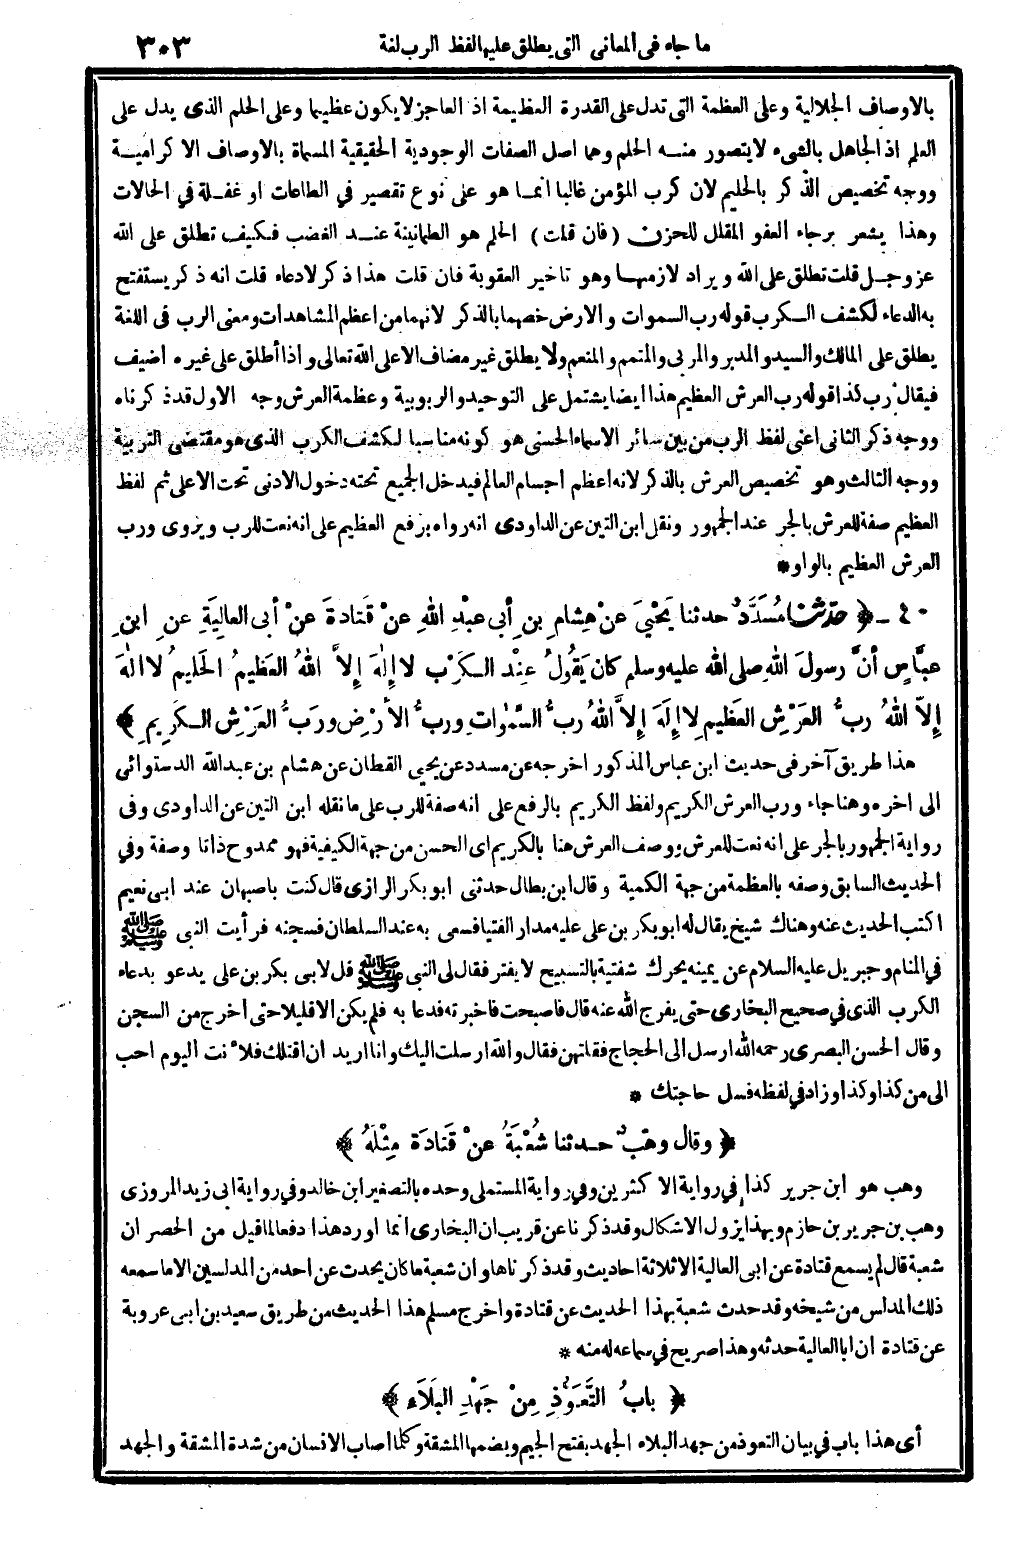 ما جاء في المعاني التي يطلق عليها لفظ الرب لغة ٣٠٣
بالاوصاف الجلالية وعلى العظمة التي تدل على القدرة العظيمة اذ العاجز لا يكون عظيما وعلى الحلم الذي يدل على
العلم اذ الجاهل بالشيء لا يتصور منه الحلم وهما اصل الصفات الوجودية الحقيقية المسماة بالاوصاف الاكرامية
ووجه تخصيص الذكر بالحليم لان كرب المؤمن غالبا انما هو على نوع تقصير في الطاعات او غفلة في الحالات
وهذا يشعر برجاء العفو المقلل للحزن (فان قلت) الحلم هو الطمانينة عند الغضب فكيف تطلق على الله
عز وجل قلت تطلق على الله ويراد لازمها وهو تاخير العقوبة فان قلت هذا ذكر لا دعاء قلت انه ذكر يستفتح
به الدعاء لكشف الكرب قوله رب السموات والارض خصهما بالذكر لانهما من اعظم المشاهدات ومعنى الرب في اللغة
يطلق على المالك والسيد والمدبر والمربي والمتمم والمنعم ولا يطلق غير مضاف الا على الله تعالى واذا أطلق على غيره اضيف
فيقال رب كذا قوله رب العرش العظيم هذا ايضا يشتمل على التوحيد والربوبية وعظمة العرش وجه الاول قد ذكرناه
ووجه ذكر الثاني اعني لفظ الرب من بين سائر الاسماء الحسنى هو كونه مناسبا لكشف الكرب الذي هو مقتضى التربية
ووجه الثالث وهو تخصيص العرش بالذكر لانه اعظم اجسام العالم فيدخل الجميع تحته دخول الادنى تحت الاعلى ثم لفظ
العظيم صفة للعرش بالجر عند الجمهور ونقل ابن التين عن الداودي انه رواه برفع العظيم على انه نعت للرب ويروى ورب
العرش العظيم بالواو *
٤٠ - ﴿ حدثنا مُسَدَّدٌ حدثنا يَحْيَي عَنْ هِشامِ بنِ أبي عبْدِ اللهِ عنْ قَتادةَ عنْ أبي العالِيَةِ عنِ ابنِ
عبَّاسٍ أنَّ رسولَ اللهِ صلى الله عليه وسلم كان يَقُولُ عِنْد الكَرْب لا إلهَ إلاَّ اللهُ العَظِيمُ الحَلِيمُ لا إلهَ
إلاَّ اللهُ ربُّ العَرْشِ العَظِيمِ لا إلهَ إلاَّ اللهُ ربُّ السَّمٰواتِ وربُّ الأرْضِ وربُّ العَرْشِ الكَرِيمِ ﴾
هذا طريق آخر في حديث ابن عباس المذكور اخرجه عن مسدد عن يحيى القطان عن هشام بن عبد الله الدستوائي
الى اخره وهنا جاء ورب العرش الكريم ولفظ الكريم بالرفع على انه صفة للرب على ما نقله ابن التين عن الداودي وفي
رواية الجمهور بالجر على انه نعت للعرش ووصف العرش هنا بالكريم اي الحسن من جهة الكيفية فهو ممدوح ذاتا وصفة وفي
الحديث السابق وصفه بالعظمة من جهة الكمية وقال ابن بطال حدثني ابو بكر الرازي قال كنت باصبهان عند ابي نعيم
اكتب الحديث عنه وهناك شيخ يقال له ابو بكر بن علي عليه مدار الفتيا فسعى به عند السلطان فسجنه فرأيت النبي ﷺ
في المنام وجبريل عليه السلام عن يمينه يحرك شفتيه بالتسبيح لا يفتر فقال لي النبي ﷺ قل لابي بكر بن علي يدعو بدعاء
الكرب الذي في صحيح البخاري حتى يفرج الله عنه قال فاصبحت فاخبرته فدعا به فلم يكن الا قليلا حتى أخرج من السجن
وقال الحسن البصري رحمه الله ارسل الى الحجاج فقلتهن فقال والله ارسلت اليك وانا اريد ان اقتلك فلأنت اليوم احب
الى من كذا وكذا وزاد في لفظه فسل حاجتك *
﴿ وقال وهْبٌ حدثنا شُعْبَةُ عنْ قَتادَةَ مِثْلَهُ ﴾
وهب هو ابن جرير كذا في رواية الاكثرين وفي رواية المستملي وحده بالتصغير ابن خالد وفي رواية ابي زيد المروزى
وهب بن جرير بن حازم وبهذا يزول الاشكال وقد ذكرنا عن قريب ان البخاري انما اورد هذا دفعا لما قيل من الحصر ان
شعبة قال لم يسمع قتادة عن ابي العالية الا ثلاثة احاديث وقد ذكرناها وان شعبة ما كان يحدث عن احد من المدلسين الا ما سمعه
ذلك المدلس من شيخه وقد حدث شعبة بهذا الحديث عن قتادة واخرج مسلم هذا الحديث من طريق سعيد بن ابي عروبة
عن قتادة ان ابا العالية حدثه وهذا صريح في سماعه له منه *
﴿ بابُ التَّعَوُّذِ مِنْ جَهْدِ البَلَاءِ ﴾
أي هذا باب في بيان التعوذ من جهد البلاء الجهد بفتح الجيم وبضمها المشقة وكلما اصاب الانسان من شدة المشقة والجهد